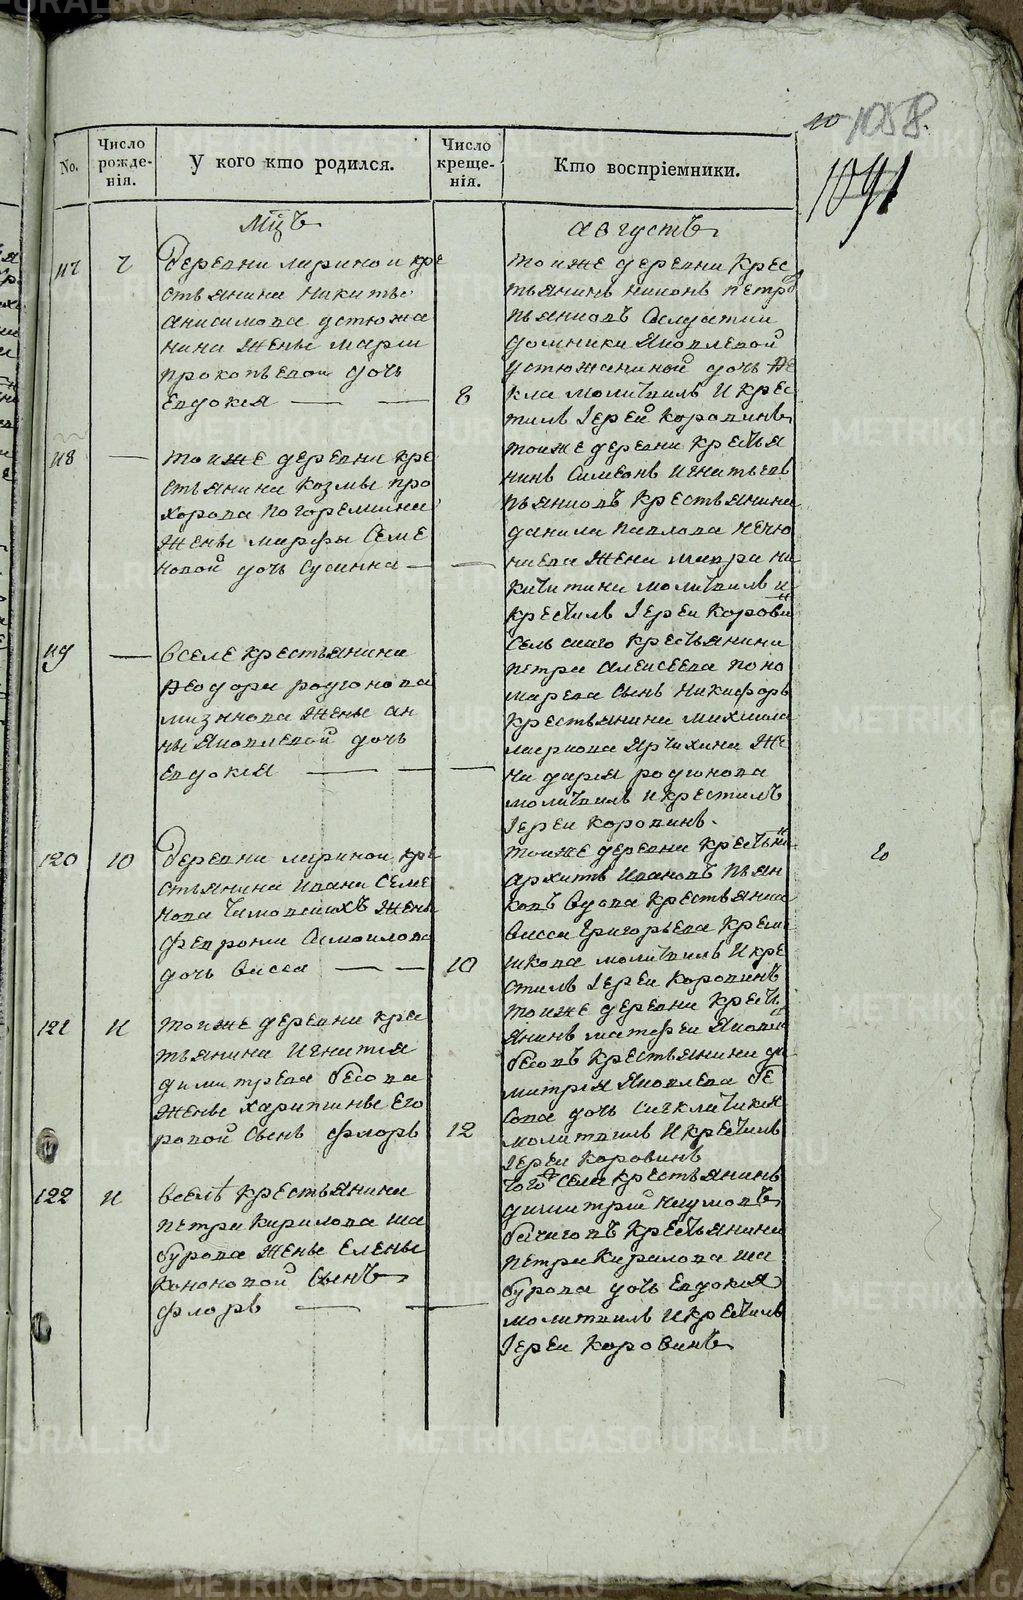 1058.
1091
No.
Число рожде-нія.
У кого кто родился.
Число креще-нія.
Кто воспріемники.
Мцъ
Августъ
117 7
деревни ларинои кре
стьянина никиты
анисимова устюжа
нина жены марьи
прокопьевои дочь
Евдокея 8
тоиже деревни крес
тьянинъ никонъ петро
пьянковъ
домники Яковлевой
устюжаниной дочь Ѳе
кла молитвилъ И крес
тилъ Іерей коровинъ
118
тоиже деревни кре
стьянина козмы про
хорова погорелкина
жены марфы Семе
новой дочь Сусанна
тоиже деревни крестья
нинъ Симеонъ игнатьевъ
пьянковъ крестьянина
данила павлова
жена мавра ни
китина молитвилъ и
крестилъ Іереи корови
119
вселе крестьянина
Ѳеодора родионова
мизинова жены ан
ны Яковлевой дочь
Евдокея
Сельскаго крестьянина
петра алексеева поно
марева Сынъ никифоръ
крестьянина михаила
маркова Ярыхина же
на дарья родионова
молитвилъ и крестилъ
Іереи коровинъ.
120 10
деревни лариной кре
стьянина ивана Семе
нова жены
февроньи Самоилова
дочь васса 10
тоиже деревни крестьянинъ
архипъ ивановъ пьян
ковъ вдова крестьянка
васса григорьева
молитвилъ И кре
стилъ Іереи коровинъ
20
121 11
тоиже деревни крес
тьянина игнатья
димитрева бесова
жены харитины его
ровой Сынъ флоръ 12
тоиже деревни кресть
янинъ матфеи Яковл
бесовъ крестьянина ди
митрия Яковлева бе
сова дочь Сигклитикия
молитвилъ и крестилъ
Іереи коровинъ
122 11
вселѣ крестьянина
петра кирилова ша
бурова жены елены
кононовой Сынъ
флоръ
того Села крестьянинъ
димитрий наумовъ
бачиговъ крестьянина
петра кирилова ша
бурова дочь Евдокея
молитвилъ и крестилъ
Іереи коровинъ